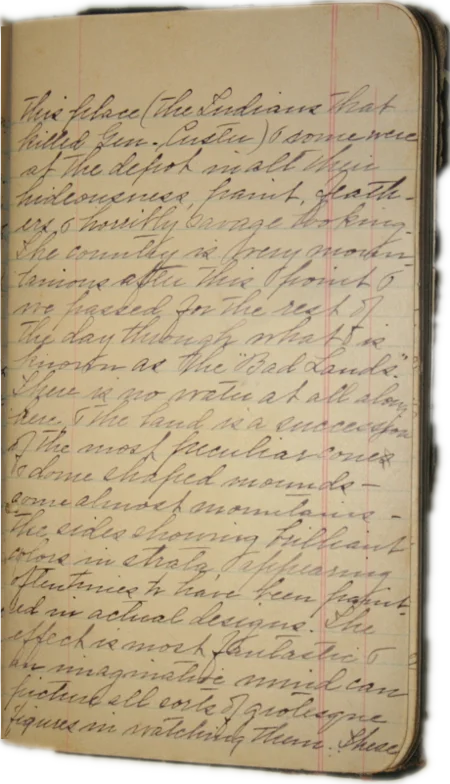 this place (the Indians that
killed Gen. Custer) & some were
at the depot in all their
hideousness, paint, feath-
ers, & horribly savage looking.
The country is very moun-
tanious after this point &
we passed for the rest of
the day through what is
known as the "Bad Lands".
There is no water at all along
here, & the land is a succession
of the most peculiar cones
& dome shaped mounds –
some almost mountains –
the sides showing brilliant
colors in strata, appearing
oftentimes to have been paint-
ed in actual designs. The
effect is most fantastic &
an imaginative mind can
picture all sorts of grotesque
figures in watching them. These